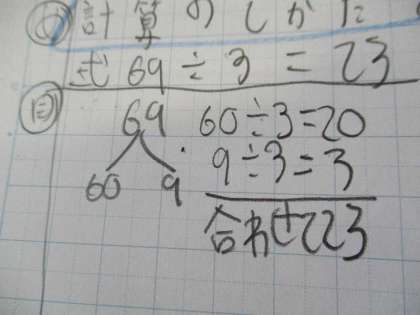 め 計算のしかた
式 69÷3=23
自 69 60÷3=20
60 9 9÷3=3
合わせて23